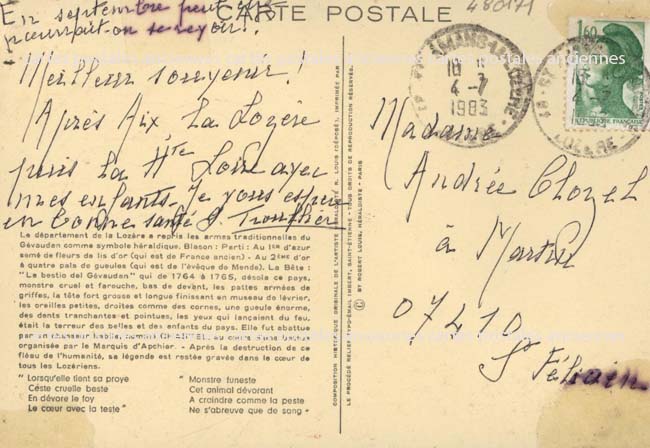 CARTE POSTALE
480171
En septembre peut-être
pourrait-on se revoir !..
Meilleur souvenir !
Après Aix La Lozère
puis la Hte Loire avec
mes enfants. Je vous espère
en bonne santé
Le département de la Lozère a repris les armes traditionnelles du
Gévaudan comme symbole héraldique. Blason : Parti : Au Ier d'azur
semé de fleurs de lis d'or (qui est de France ancien) - Au 2ÈME d'or
à quatre pals de gueules (qui est de l'évêque de Mende). La Bête :
"La bestio del Gévaudan" qui de 1764 à 1765, désola ce pays,
monstre cruel et farouche, bas de devant, les pattes armées de
griffes, la tête fort grosse et longue finissant en museau de lévrier,
les oreilles petites, droites comme des cornes, une gueule énorme,
des dents tranchantes et pointues, les yeux qui lançaient du feu,
était la terreur des belles et des enfants du pays. Elle fut abattue
par un chasseur habile, nommé CHASTEL au cours d'une battue
organisée par le Marquis d'Apchier. - Après la destruction de ce
fléau de l'humanité, sa légende est restée gravée dans le cœur de
tous les Lozériens.
" Lorsqu'elle tient sa proye
Céste cruelle beste
En dévore le foy
Le cœur avec la teste "
" Monstre funeste
Cet animal dévorant
A craindre comme la peste
Ne s'abreuve que de sang "
COMPOSITION HISTORIQUE ORIGINALE DE L'ARTISTE HÉRALDISTE R. LOUIS (DÉPOSÉ), IMPRIMÉE PAR
LE PROCÉDÉ RELIEF TYPO-ÉMAIL IMBERT, SAINT-ÉTIENNE - TOUS DROITS DE REPRODUCTION RÉSERVÉS.
© BY ROBERT LOUIS, HÉRALDISTE - PARIS
18 H
4 - 7
1983
48
LOZERE
1,60
REPUBLIQUE FRANÇAISE
Madame
Andrée Clozel
à
07410
St Félicien